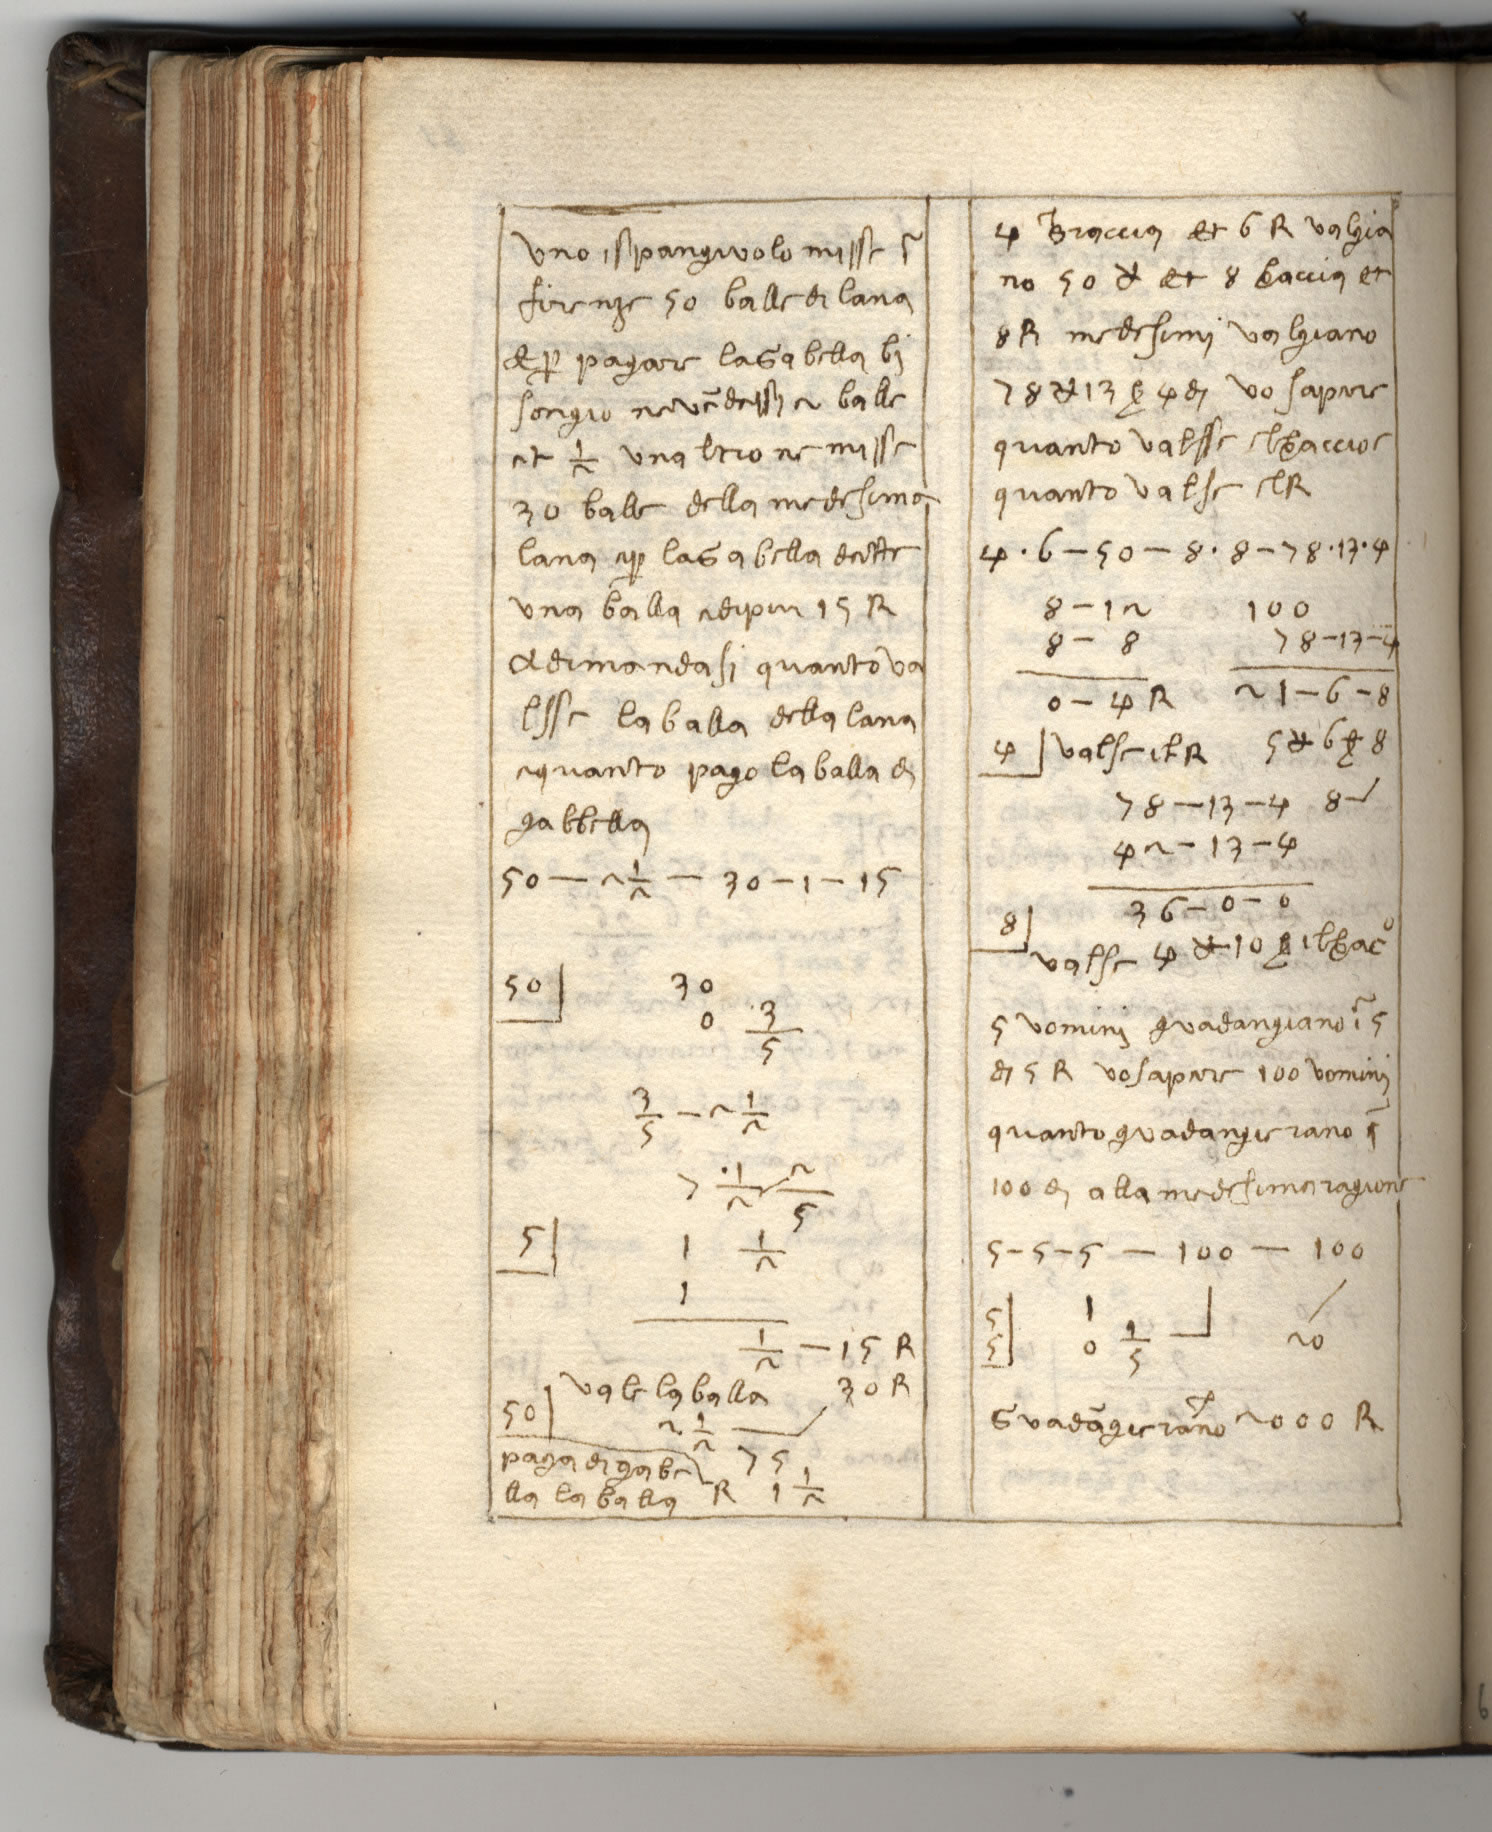 Uno ispangiuolo misse ĩ
firenze 50 balle di lana
et p̱ pagare laGabella bi
songio
et 1/2 unaltro ne misse
30 balle della medesima
lana e p̱ laGabella dette
una balla e dipiu 15 R
adimandasi quanto va
lsse la balla della lana
e quanto pago la balla di
gabbella
50 — 2 1/2 — 30 — 1 — 15
50 30
0 3/5
3/5 — 2 1/2
7 1/2 2/5
5 1 1/2
1
1/2 — 15 R
vale la balla 30 R
50 2 1/2
paga di gabe 75
lla la balla R 1 1/2
4 Braccia et 6 R valgia
no 50 ₰ et 8 braccia et
8 R medesimi valgiano
78 ₰ 13 ẞ 4 di vo sapere
quanto valsse el braccio e
quanto valse el R
4 · 6 — 50 — 8 · 8 — 78 · 13 · 4
8 — 12 100
8 — 8 78 — 13 — 4
0 — 4 R 21 — 6 — 8
4 valse il R 5 ₰ 6 ẞ 8
78 — 13 — 4 8
42 — 13 — 4
36 — 0 — 0
8
valse 4 ₰ 10 ẞ il braco
5 uomini guadangiano ĩ 5
di 5 R vo sapere 100 uomini
quanto guadangierano ĩ
100 di alla medesima ragione
5 — 5 — 5 — 100 — 100
5 1
5 0 1/5 20
Guadãgierano 2000 R